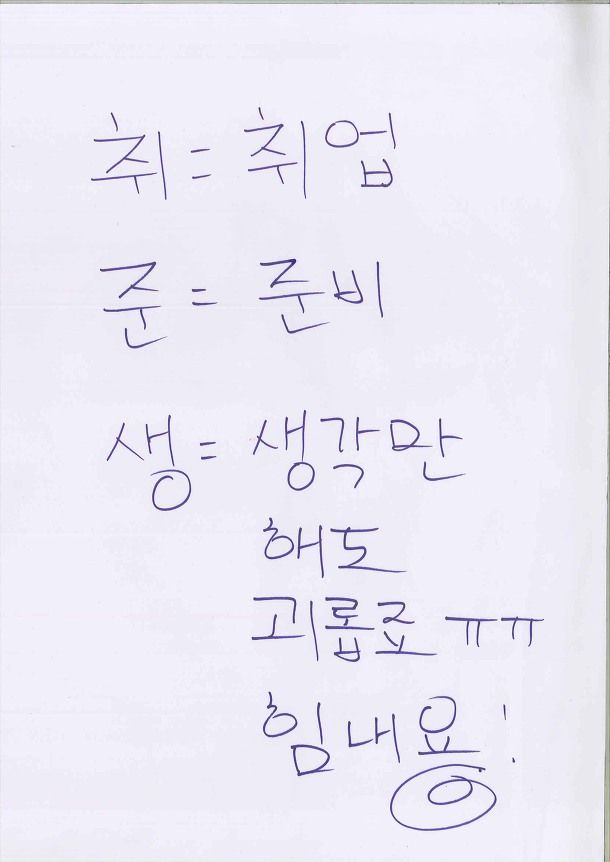 취 = 취업
준 = 준비
생 = 생각만
해도
괴롭죠 ㅠㅠ
힘내용!